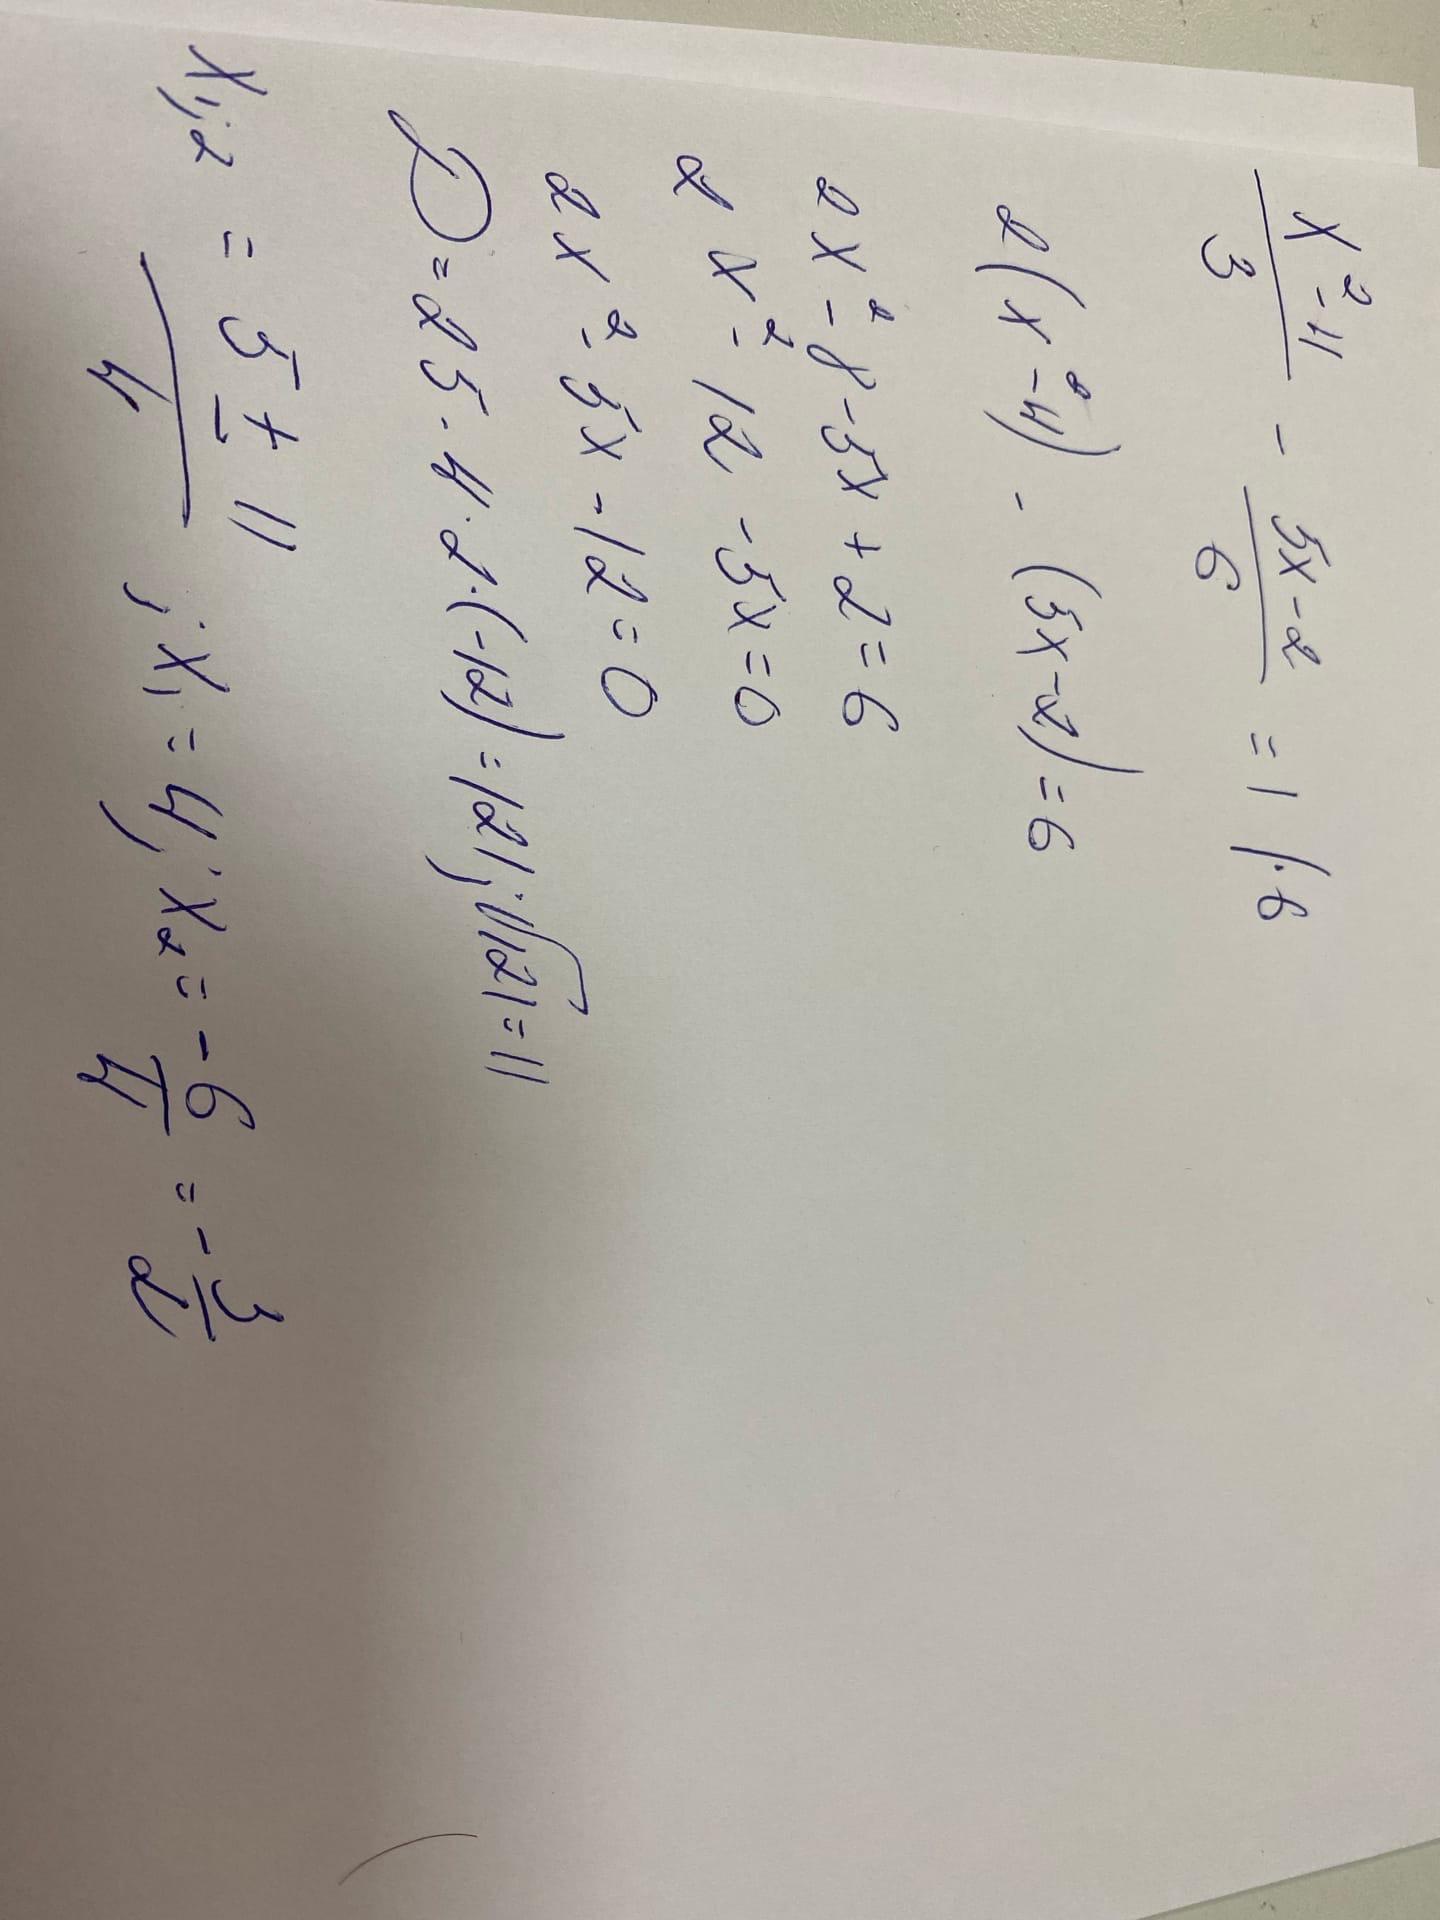 (x²-4)/3 - (5x-2)/6 = 1 |·6
2(x²-4) - (5x-2) = 6
2x²-8-5x+2=6
2x²-12-5x=0
2x²-5x-12=0
D=25-4·2·(-12)=121; √121=11
x₁;₂ = (5±11)/4; x₁=4; x₂=-6/4=-3/2